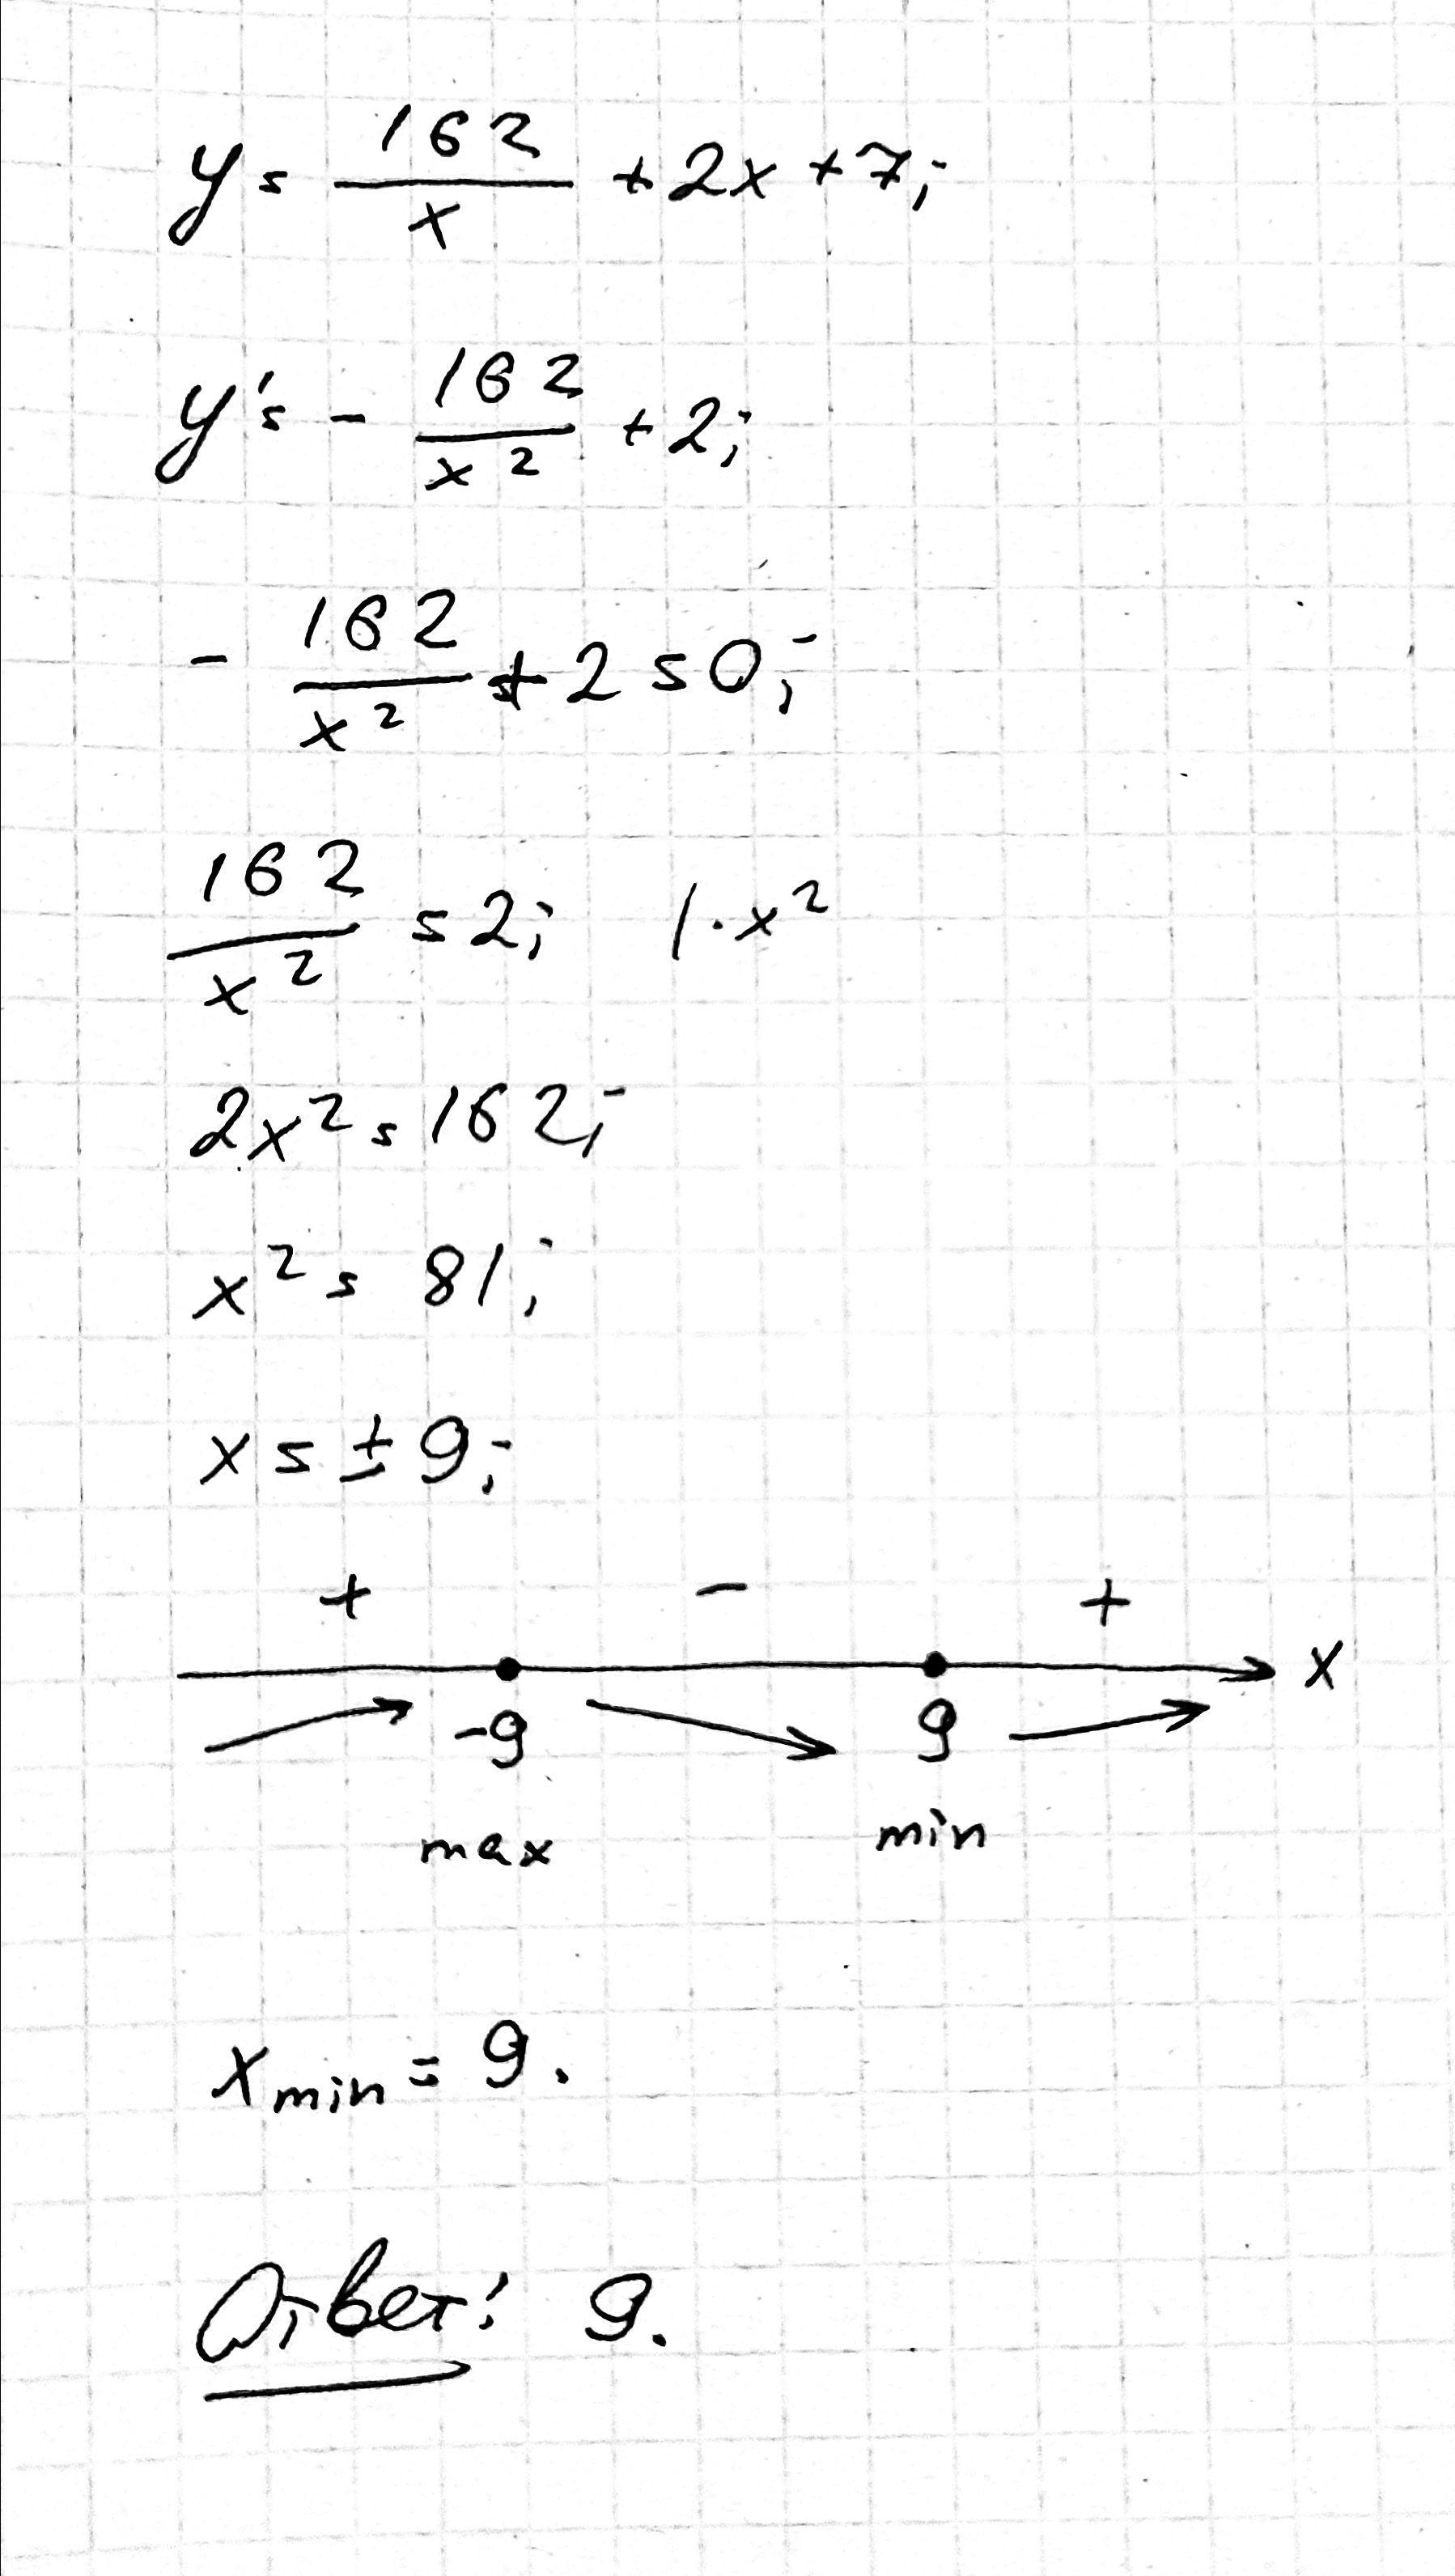 y = 162/x + 2x + 7;
y' = - 162/x² + 2;
- 162/x² + 2 = 0;
162/x² = 2; | · x²
2x² = 162;
x² = 81;
x = ± 9;
+ - +
-9 9 x
max min
x min = 9.
Ответ: 9.